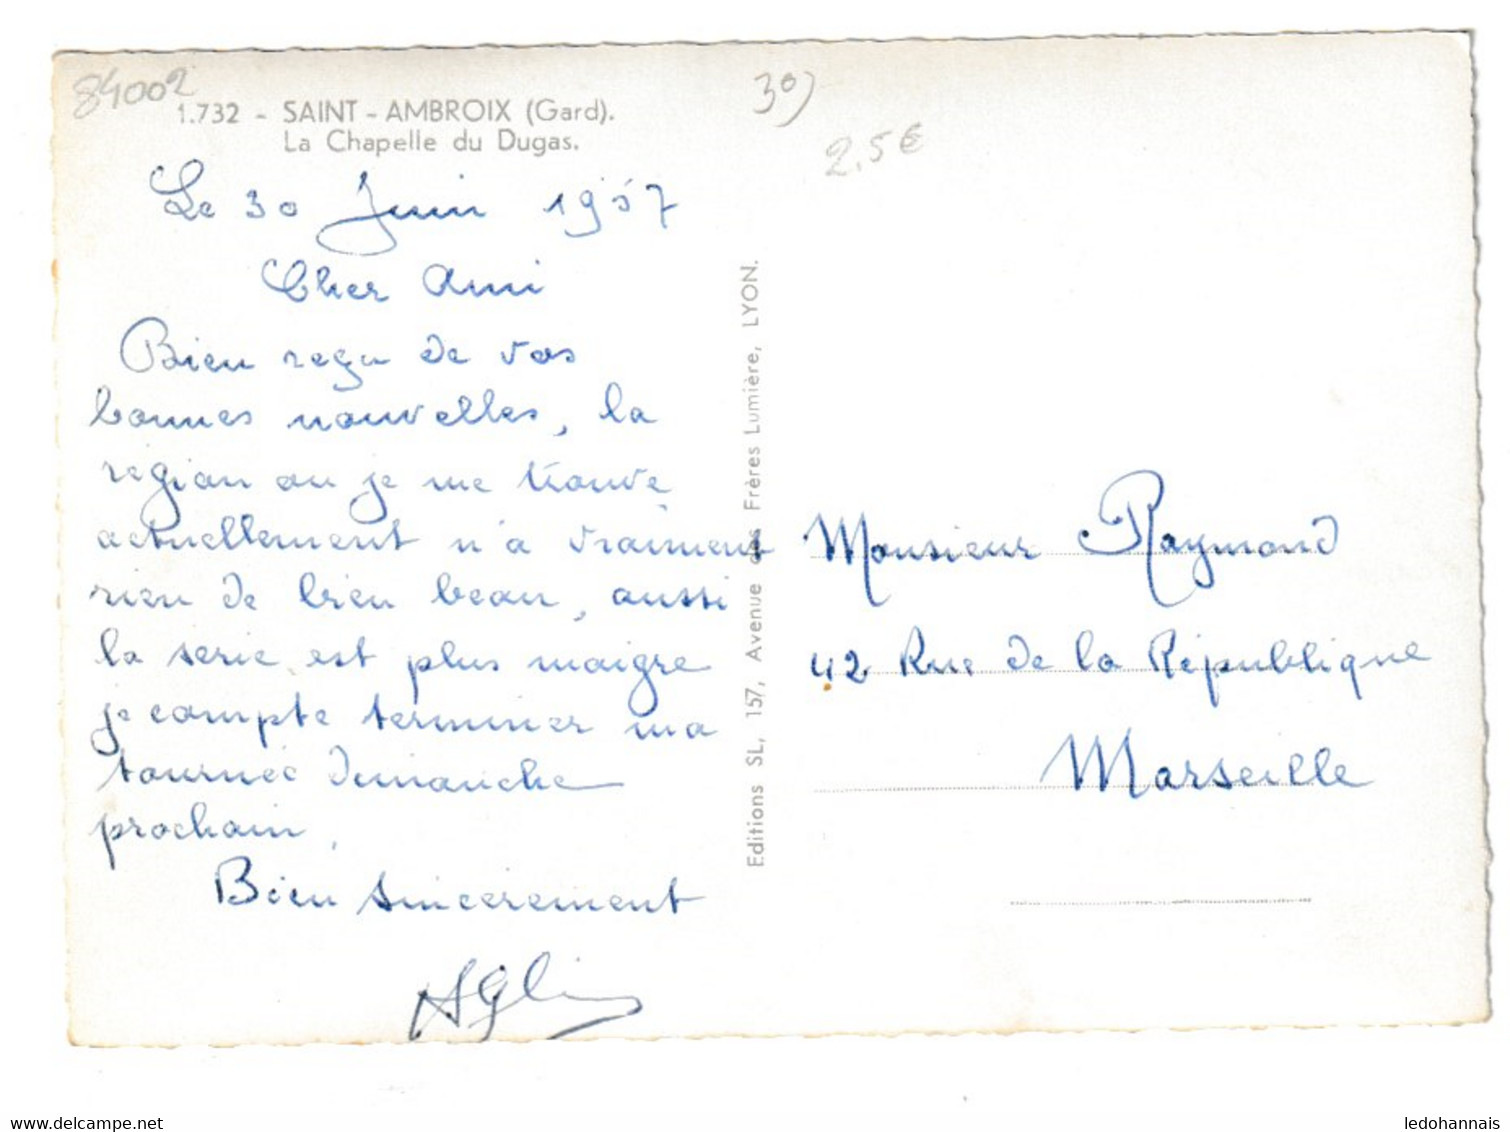 84002
1.732 - SAINT-AMBROIX (Gard).
La Chapelle du Dugas.
30)
2.5€
Le 30 Juin 1957
Cher Ami
Bien reçu de vos
bonnes nouvelles, la
region ou je me trouve
actuellement n'a vraiment
rien de bien beau, aussi
la serie est plus maigre
je compte terminer ma
tournée dimanche
prochain,
Bien sincerement
Editions SL, 157, Avenue des Frères Lumière, LYON.
Monsieur Raymond
42 Rue de la République
Marseille
www.delcampe.net
ledohannais